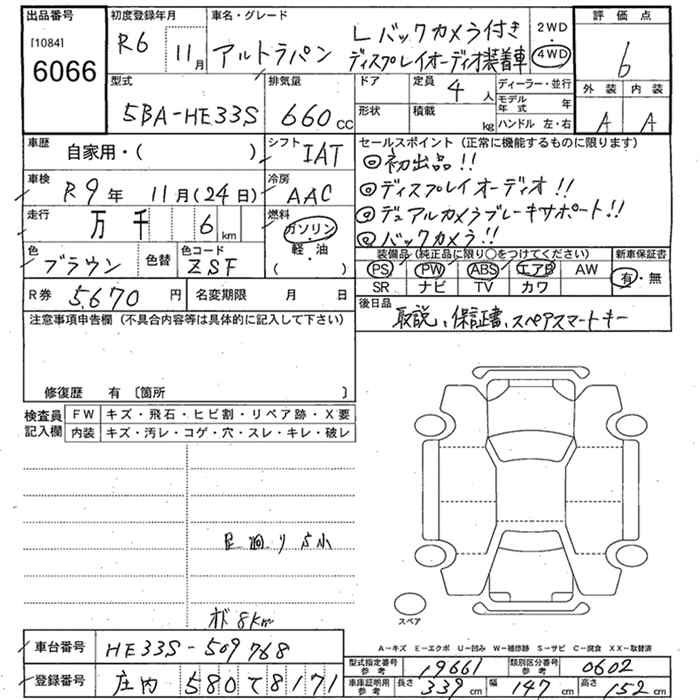 出品番号
[1084]
6066
初度登録年月
R6 11月
車名・グレード
アルトラパン
L バックカメラ付き
ディスプレイオーディオ装着車
2WD
4WD
評価点
6
外装 内装
A A
型式
5BA-HE33S
排気量
660 CC
ドア
定員
4人
形状
積載
kg
ディーラー・並行
モデル年式 年
ハンドル 左・右
車歴
自家用・( )
シフト
IAT
車検
R9年 11月(24日)
冷房
AAC
走行
万 千 6 km
燃料
ガソリン
軽・油
( )
色
ブラウン
色替
色コード
ZSF
R券 5,670 円
名変期限 月 日
セールスポイント(正常に機能するものに限ります)
◎初出品!!
◎ディスプレイオーディオ!!
◎デュアルカメラブレーキサポート!!
◎バックカメラ!!
装備品(純正品に限り○をつけてください)
PS PW ABS エアB AW
SR ナビ TV カワ
新車保証書
有・無
後日品
取説、保証書、スペアスマートキー
注意事項申告欄(不具合内容等は具体的に記入して下さい)
修復歴 有 〔箇所 〕
検査員記入欄
FW キズ・飛石・ヒビ割・リペア跡・X要
内装 キズ・汚レ・コゲ・穴・スレ・キレ・破レ
足廻りS小
オド8Km
スペア
A-キズ E-エクボ U-凹み W-補修跡 S-サビ C-腐食 XX-取替済
車台番号 HE33S-509768
登録番号 庄内 580て8171
型式指定番号 参考 19661
類別区分番号 参考 0602
車庫証明用 参考 長さ 339 cm 幅 147 cm 高さ 152 cm